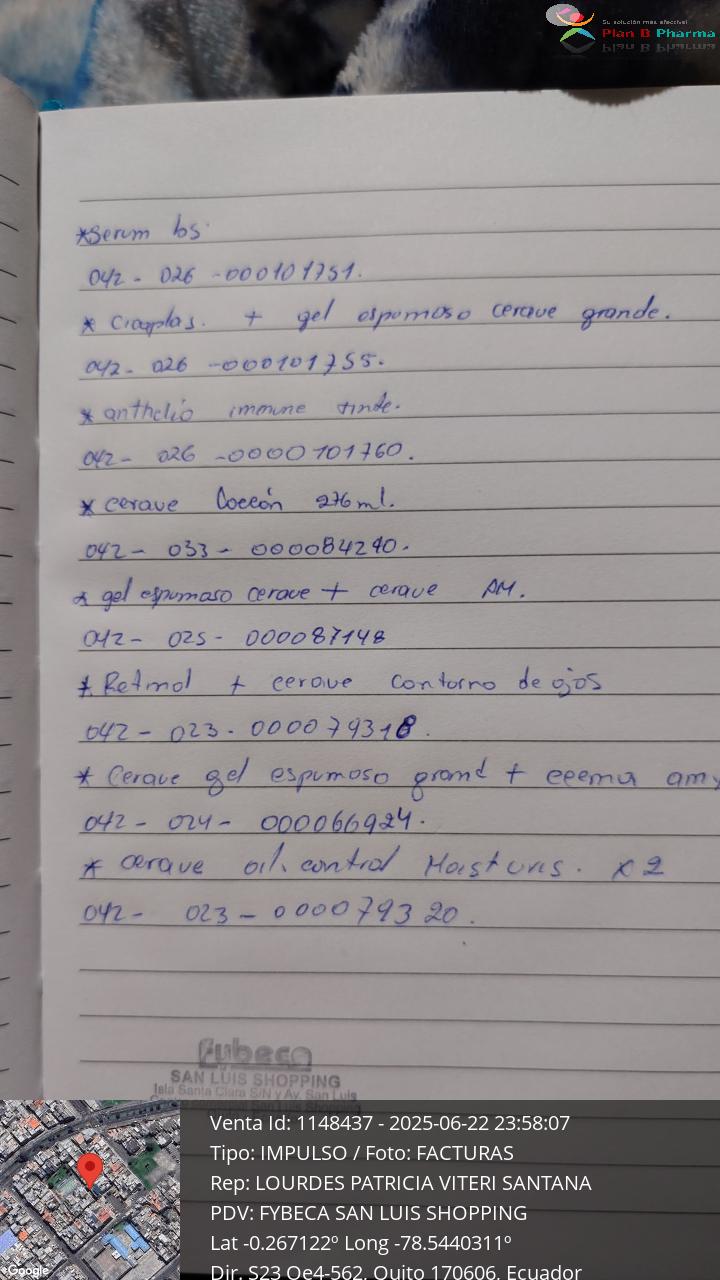 Su solución más efectiva!
Plan B Pharma
*Serum bs.
042 - 026 -000101751.
* Cicaplas. + gel espumoso cerave grande.
042 - 026 -000101755.
* anthelio immune tinde.
042 - 026 -0000101760.
* cerave Loccón 276ml.
042 - 033 - 000084240.
* gel espumaso cerave + cerave AM.
042 - 025 - 000087148
* Retinol + cerave contorno de ojos
042 - 023 - 000079318.
* Cerave gel espumoso grand + ceema am
042 - 024 - 000066924.
* cerave oil control Moisturis. x2
042 - 023 - 000079320.
fybeca
SAN LUIS SHOPPING
Isla Santa Clara S/N y Av. San Luis
San Luis Shopping
Venta Id: 1148437 - 2025-06-22 23:58:07
Tipo: IMPULSO / Foto: FACTURAS
Rep: LOURDES PATRICIA VITERI SANTANA
PDV: FYBECA SAN LUIS SHOPPING
Lat -0.267122º Long -78.5440311º
Dir. S23 Oe4-562, Quito 170606, Ecuador
Google